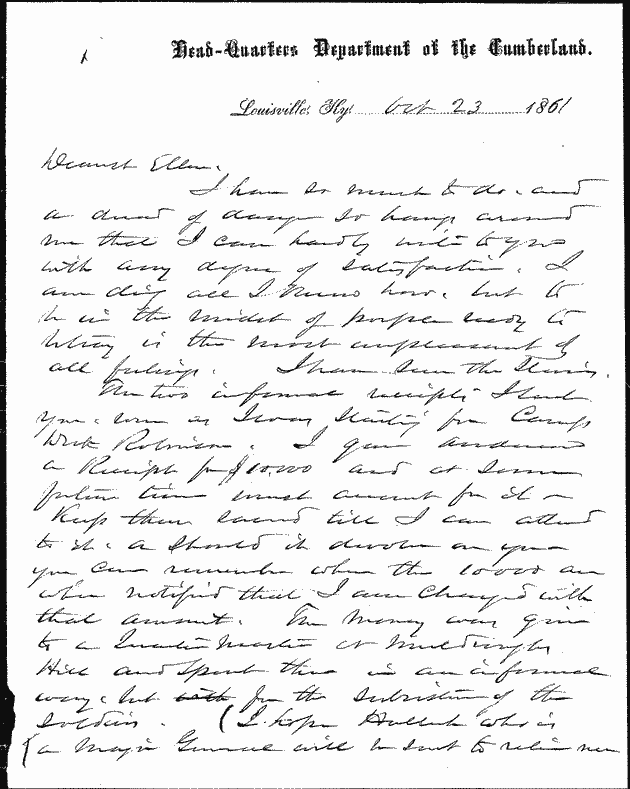 Head-Quarters Department of the Cumberland.
Louisville, Ky. Oct 23 1861
Dearest Ellen,
I have so much to do, and
a dread of danger so hangs around
me that I can hardly write to you
with any degree of satisfaction. I
am doing all I know how, but to
be in the midst of people ready to
betray is the most unpleasant of
all feelings. I have seen the
The two informal receipts I sent
you, were as I was starting for Camp
Dick Robinson. I gave Anderson
a Receipt for $10,000 and at some
future time must account for it -
Keep them sacred till I can attend
to it. or should it devolve on you
you can remember when the 10000 are
when notified that I am charged with
that amount. The money was given
to a Quarter Master at Muldraugh
Hill and spent there in an informal
way, but with for the subsistence of the
soldiers. (I hope Halleck who is
(a Major General will be sent to relieve me